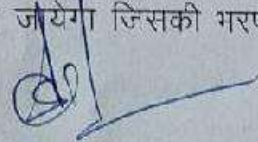 जायेगा जिसकी भरप